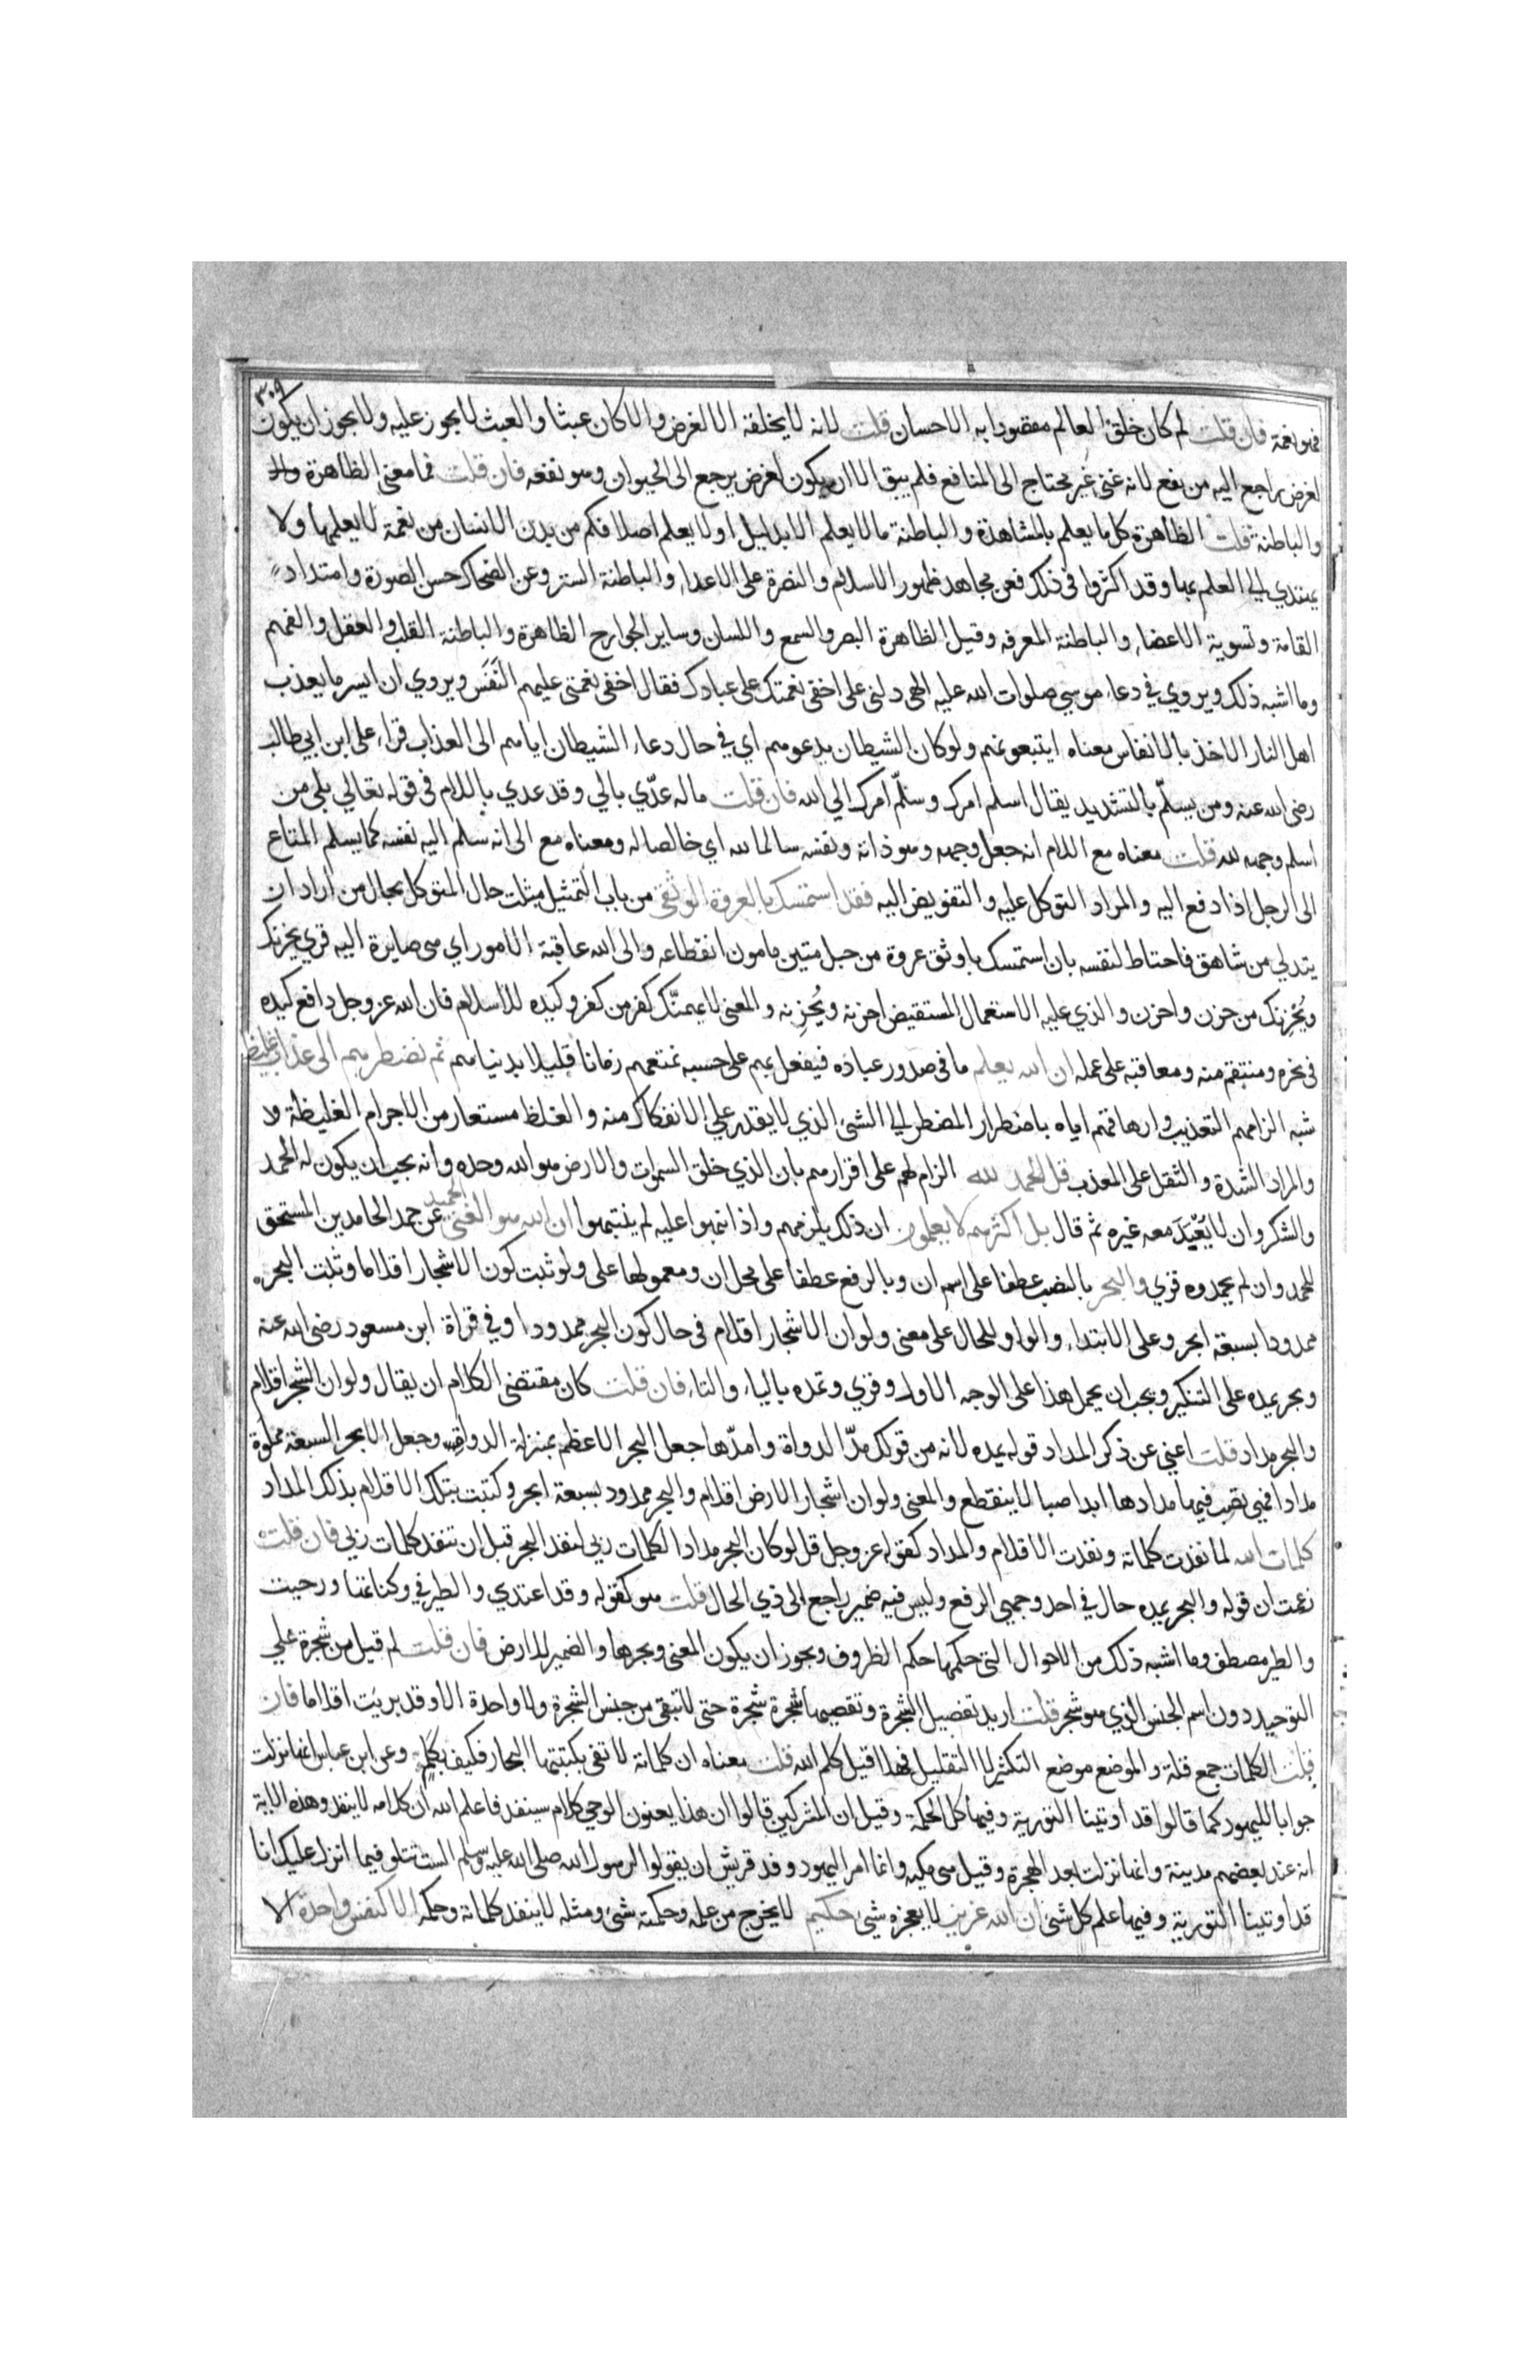 ٣٠٩
فهو نعمة فان قلت لم كان خلق العالم مقصودا به الاحسان قلت لانه لا يخلقه الا لغرض والا كان عبثا والعبث لا يجوز عليه ولا يجوز ان يكون
لغرض راجع اليه من نفع لانه غني غير محتاج الى المنافع فلم يبق الا ان يكون لغرض يرجع الى الحيوان وهو نفعه فان قلت فما معنى الظاهرة
والباطنة قلت الظاهرة كل ما يعلم بالمشاهدة والباطنة ما لا يعلم الا بدليل او لا يعلم اصلا فكم من بدن الانسان من نعمة لا يعلمها ولا
يهتدي الى العلم بها وقد اكثروا في ذلك فعن مجاهد ظهور الاسلام والنصرة على الاعداء والباطنة الستر وعن الضحاك حسن الصورة وامتداد
القامة وتسوية الاعضاء والباطنة المعرفه وقيل الظاهرة البصر والسمع واللسان وساير الجوارح الظاهرة والباطنة القلب والعقل والفهم
وما اشبه ذلك ويروي في دعاء موسي صلوات الله عليه الهي دلني على اخفى نعمتك على عبادك فقال اخفى نعمتي عليهم النَّفَس ويروي ان ايسر ما يعذب
اهل النار الاخذ بالانفاس معناه ايتبعونهم ولو كان الشيطان يدعوهم اي في حال دعاء الشيطان اياهم الى العذاب قراء علي ابن ابي طالب
رضى الله عنه ومن يسلّم بالتشديد يقال اسلم امرك وسلّم امرك الي الله فان قلت ما له عدّي بالي وقد عدي باللام في قوله تعالي بلي من
اسلم وجهه لله قلت معناه مع اللام انه جعل وجهه وهو ذاته ونفسه سالما لله اي خالصا له ومعناه مع الى انه سلم اليه نفسه كما يسلم المتاع
الى الرجل اذا دفع اليه والمراد التوكل عليه والتفويض اليه فقد استمسك بالعروة الوثقى من باب التمثيل مثلت حال المتوكل بحال من اراد ان
يتدلي من شاهق فاحتاط لنفسه بان استمسك باوثق عروة من حبل متين مامون انقطاعه والى الله عاقبة الامور اي هى صايرة اليه قري يحزنك
ويُحْزِنك من حزن واحزن والذي عليه الاستعمال المستفيض احزنه ويُحزِنه والمعنى لا يهمنّك كفر من كفر وكيده للاسلام فان الله عز وجل دافع كيده
في نحره ومنتقم منه ومعاقبه على عمله ان الله يعلم ما في صدور عباده فيفعل بهم على حسبه نمتعهم زمانا قليلا بدنياهم ثم نضطرهم الى عذاب غليظ
شبه الزامهم التعذيب وارهاقهم اياه باضطرار المضطر الى الشئ الذي لا يقدر علي الانفكاك منه والغلظ مستعار من الاجرام الغليظة
والمراد الشدة والثقل على المعذب قل الحمد لله الزام لهم على اقرارهم بان الذي خلق السموات والارض هو الله وحده وانه يجب ان يكون له الحمد
والشكر وان لا يُعْبَد معه غيره ثم قال بل اكثرهم لا يعلمون ان ذلك يلزمهم واذا نبهوا عليه لم ينتبهوا ان الله هو الغني الحميد عن حمد الحامدين المستحق
للحمد وان لم يحمدوه قري والبحر بالنصب عطفا على اسم ان وبالرفع عطفا على محل ان ومعمولها على ولو ثبت كون الاشجار اقلاما وثبت البحر
ممدودا بسبعة ابحر وعلى الابتداء والواو للحال على معنى ولو ان الاشجار اقلام في حال كون البحر ممدودا وفي قراة ابن مسعود رضى الله عنه
وبحر يمده على التنكير ويجب ان يحمل هذا على الوجه الاول وقري وتمده بالياء والتاء فان قلت كان مقتضى الكلام ان يقال ولو ان الشجر اقلام
والبحر مداد قلت اغني عن ذكر المداد قوله يمده لانه من قولك مدّ الدواة وامدّها جعل البحر الاعظم بمنزلة الدواة وجعل الابحر السبعة مملوة
مدادا فهي تصب فيها مدادها ابدا صبا لا ينقطع والمعنى ولو ان اشجار الارض اقلام والبحر ممدود بسبعة ابحر وكتبت بتلك الاقلام بذلك المداد
كلمات الله لما نفدت كلماته ونفدت الاقلام والمداد كقوله عز وجل قل لو كان البحر مدادا لكلمات ربي لنفد البحر قبل ان تنفد كلمات ربي فان قلت
زعمت ان قوله والبحر يمده حال في احد وجهي الرفع وليس فيه ضمير راجع الى ذي الحال قلت هو كقوله وقد اغتدي والطير في وكناتها ورحبت
والطير مصطف وما اشبه ذلك من الاحوال التي حكمها حكم الظروف ويجوز ان يكون المعنى وبحرها والضمير للارض فان قلت لم قيل من شجرة علي
التوحيد دون اسم الجنس الذي هو شجر قلت اريد تفصيل الشجرة وتقصيها شجرة شجرة حتى لا تبقى من جنس الشجرة ولا واحدة الا وقد بريت اقلاما فان
قلت الكلمات جمع قلة والموضع موضع التكثير لا التقليل فهلا قيل كلم الله قلت معناه ان كلماته لا تفى بكتبتها البحار فكيف بكلمه وعن ابن عباس انها نزلت
جوابا لليهود كما قالوا قد اوتينا التورية وفيها كل الحكمة وقيل ان المشركين قالوا ان هذا يعنون الوحي كلام سينفد فاعلم الله ان كلامه لا ينفد وهذه الاية
انه عند بعضهم مدينة وانها نزلت بعد الهجرة وقيل هى مكيه وانما امر اليهود وفد قريش ان يقولوا لرسول الله صلى الله عليه وسلم الست تتلو فيما انزل عليك انا
قد اوتينا التورية وفيها علم كل شئ ان الله عزيز لا يعجزه شئ حكيم لا يخرج من علمه وحكمته شئ ومثله لا ينفد كلماته وحكمه الا كنفس واحدة الا